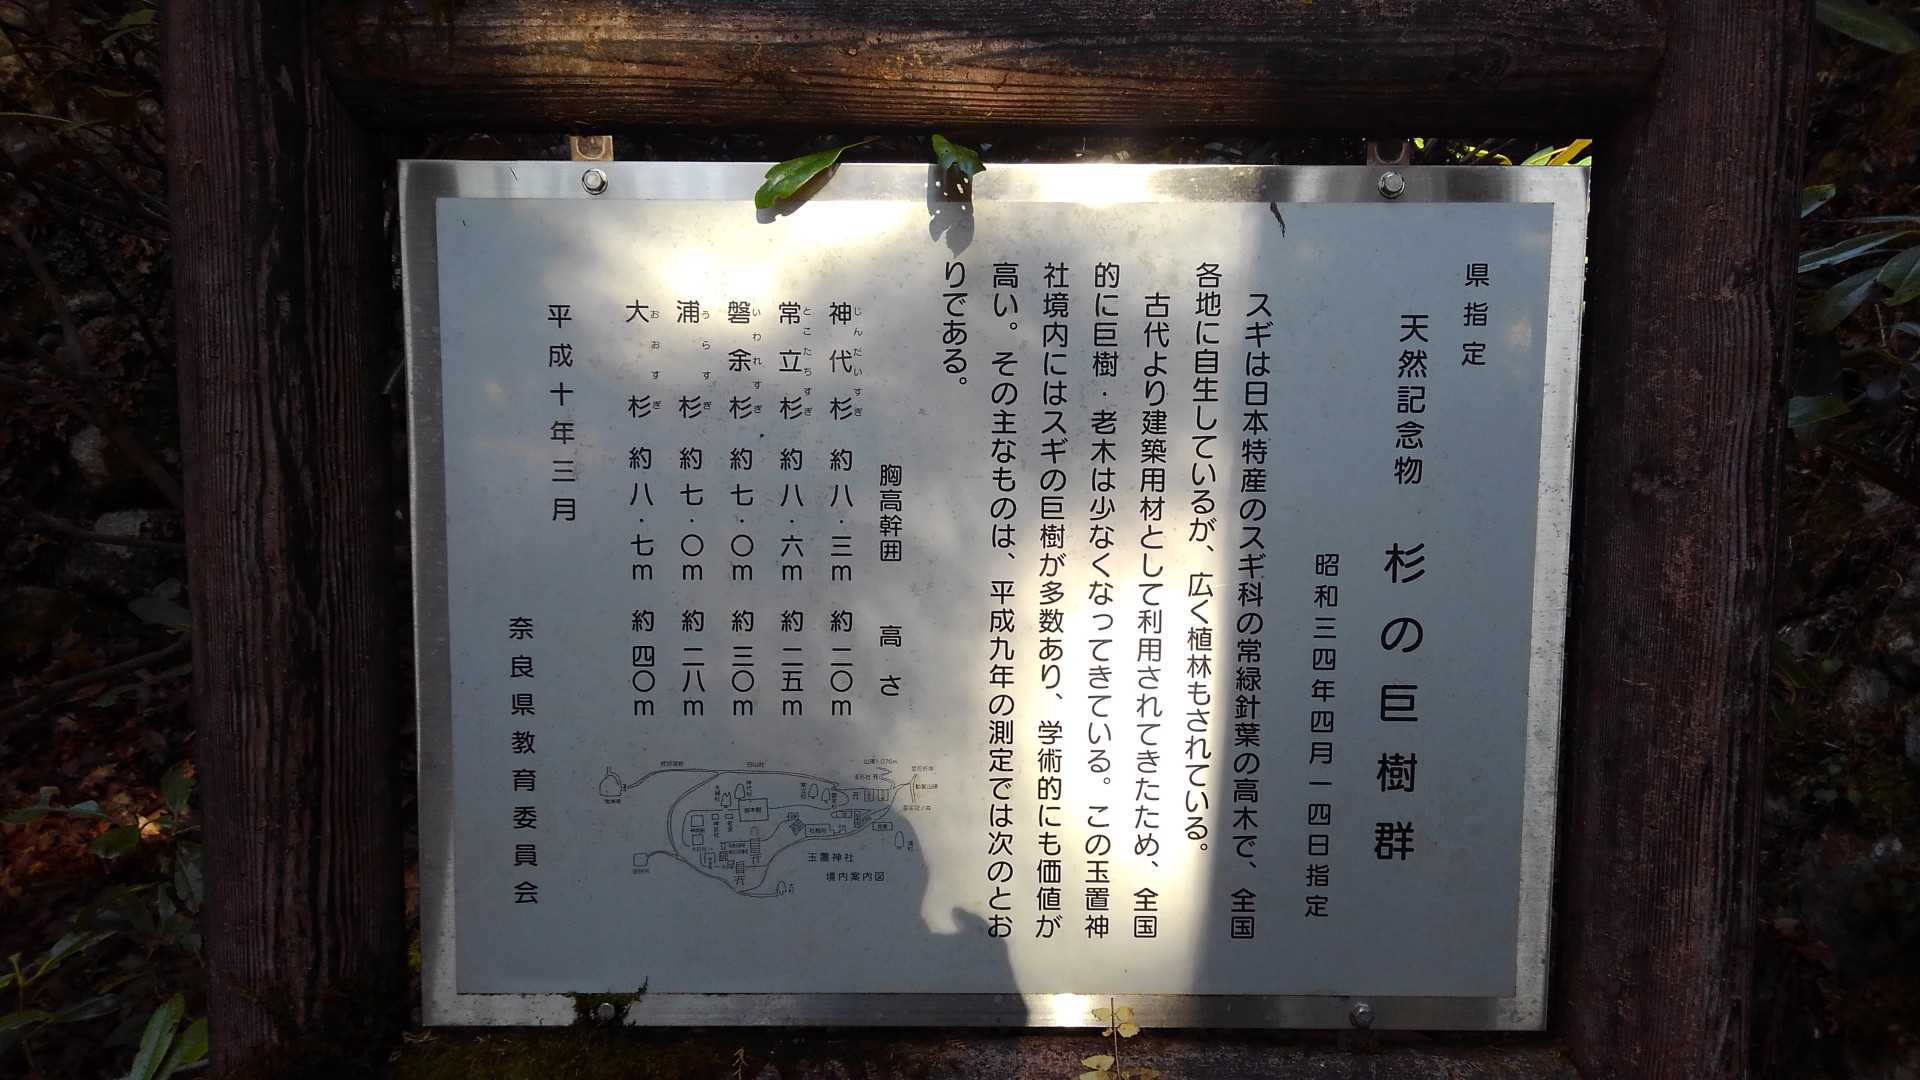 県指定
天然記念物　杉の巨樹群
昭和三四年四月一四日指定
スギは日本特産のスギ科の常緑針葉の高木で、全国
各地に自生しているが、広く植林もされている。
古代より建築用材として利用されてきたため、全国
的に巨樹・老木は少なくなってきている。この玉置神
社境内にはスギの巨樹が多数あり、学術的にも価値が
高い。その主なものは、平成九年の測定では次のとお
りである。
胸高幹囲　高さ
神代杉　約八・三m　約二〇m
じんだいすぎ
常立杉　約八・六m　約二五m
とこたちすぎ
磐余杉　約七・〇m　約三〇m
いわれすぎ
浦杉　約七・〇m　約二八m
うらすぎ
大杉　約八・七m　約四〇m
おおすぎ
平成十年三月
奈良県教育委員会
玉置神社
境内案内図